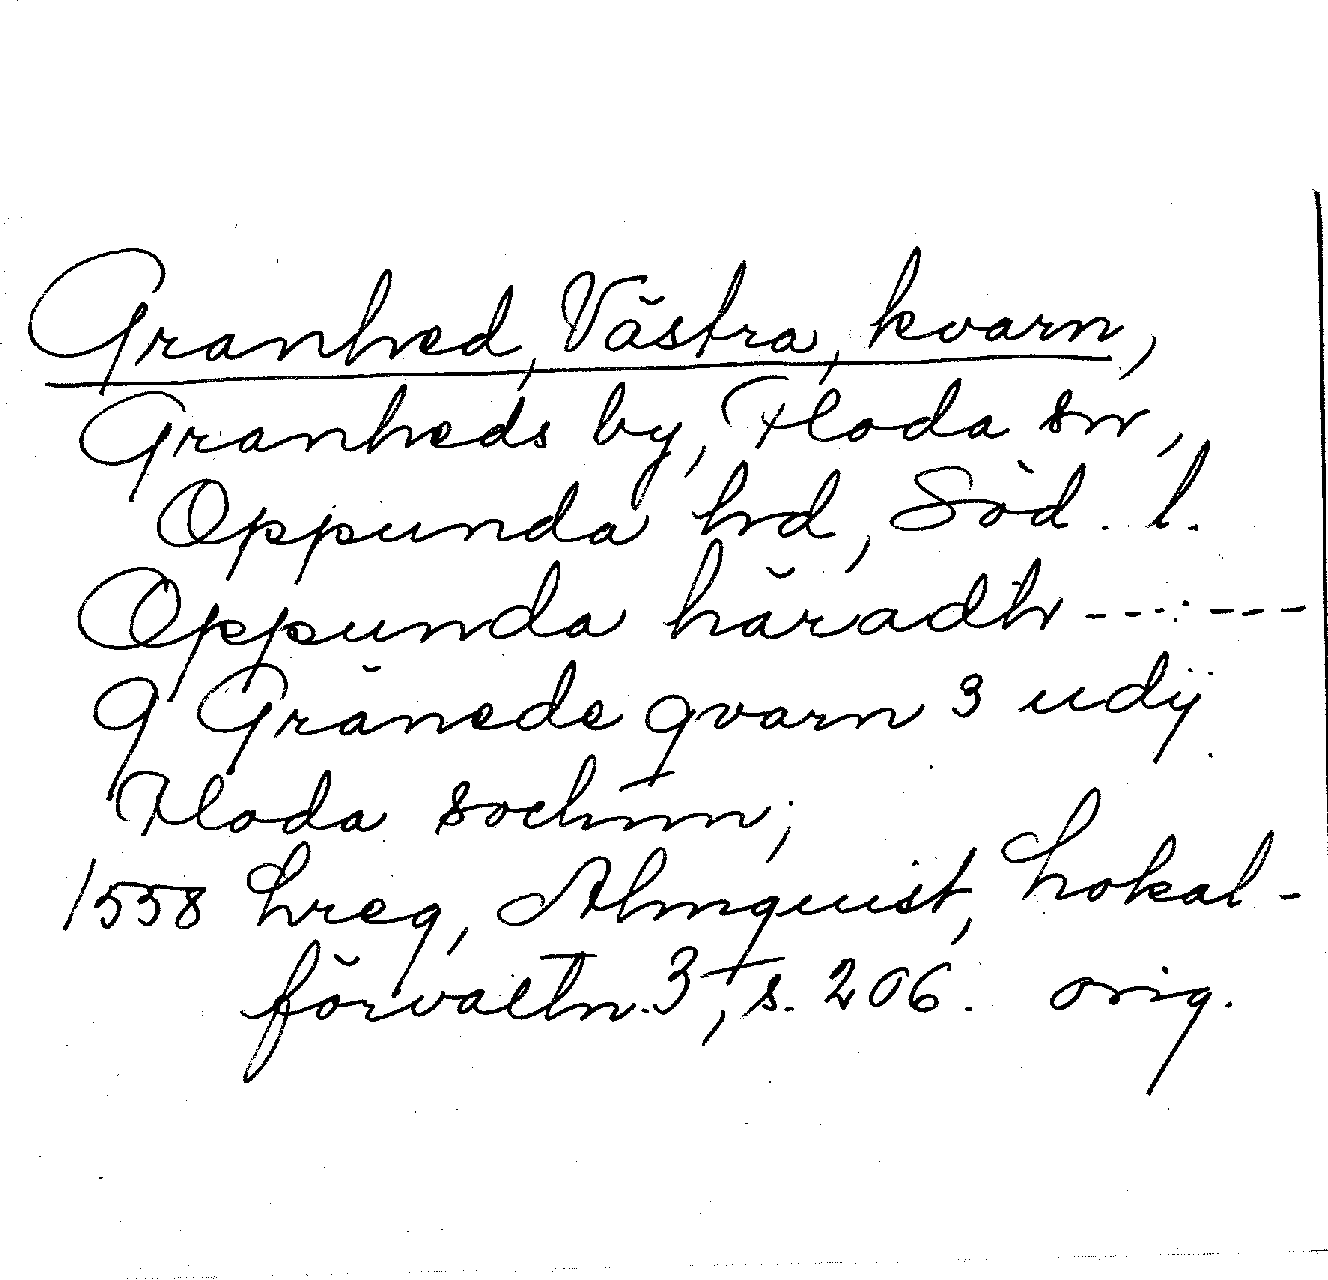 Granhed, Västra, kvarn,
Granheds by, Floda sn,
Oppunda hd, Söd. l.
Oppunda häradh ------
9 Gränede qvarn 3 udÿ
Floda sochnn;
1558 hreg, Almquist, Lokal-
förvaltn. 3, s. 206. orig.